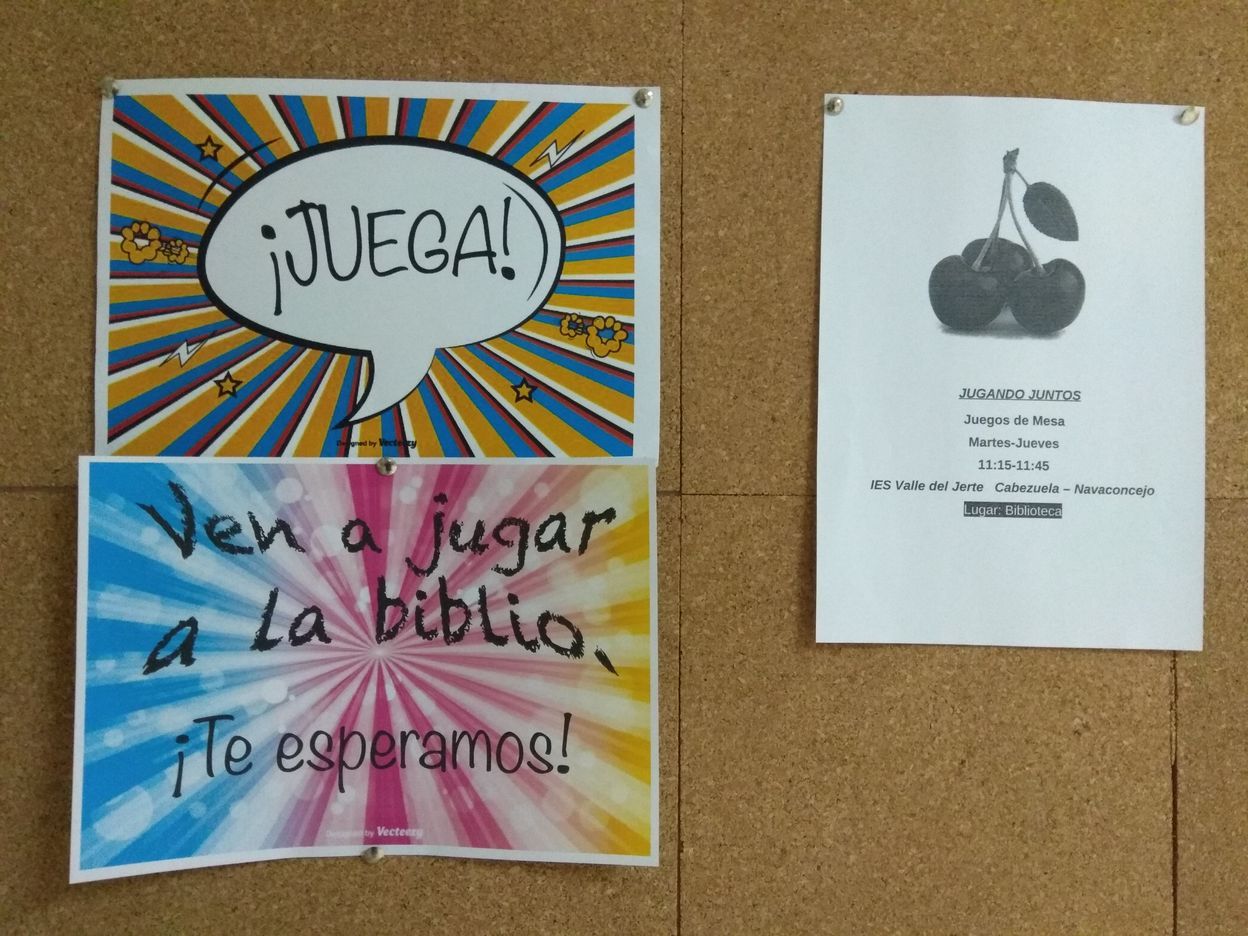 ¡JUEGA!
Designed by Vecteezy
Ven a jugar
a la biblio,
¡Te esperamos!
Designed by Vecteezy
JUGANDO JUNTOS
Juegos de Mesa
Martes-Jueves
11:15-11:45
IES Valle del Jerte Cabezuela – Navaconcejo
Lugar: Biblioteca